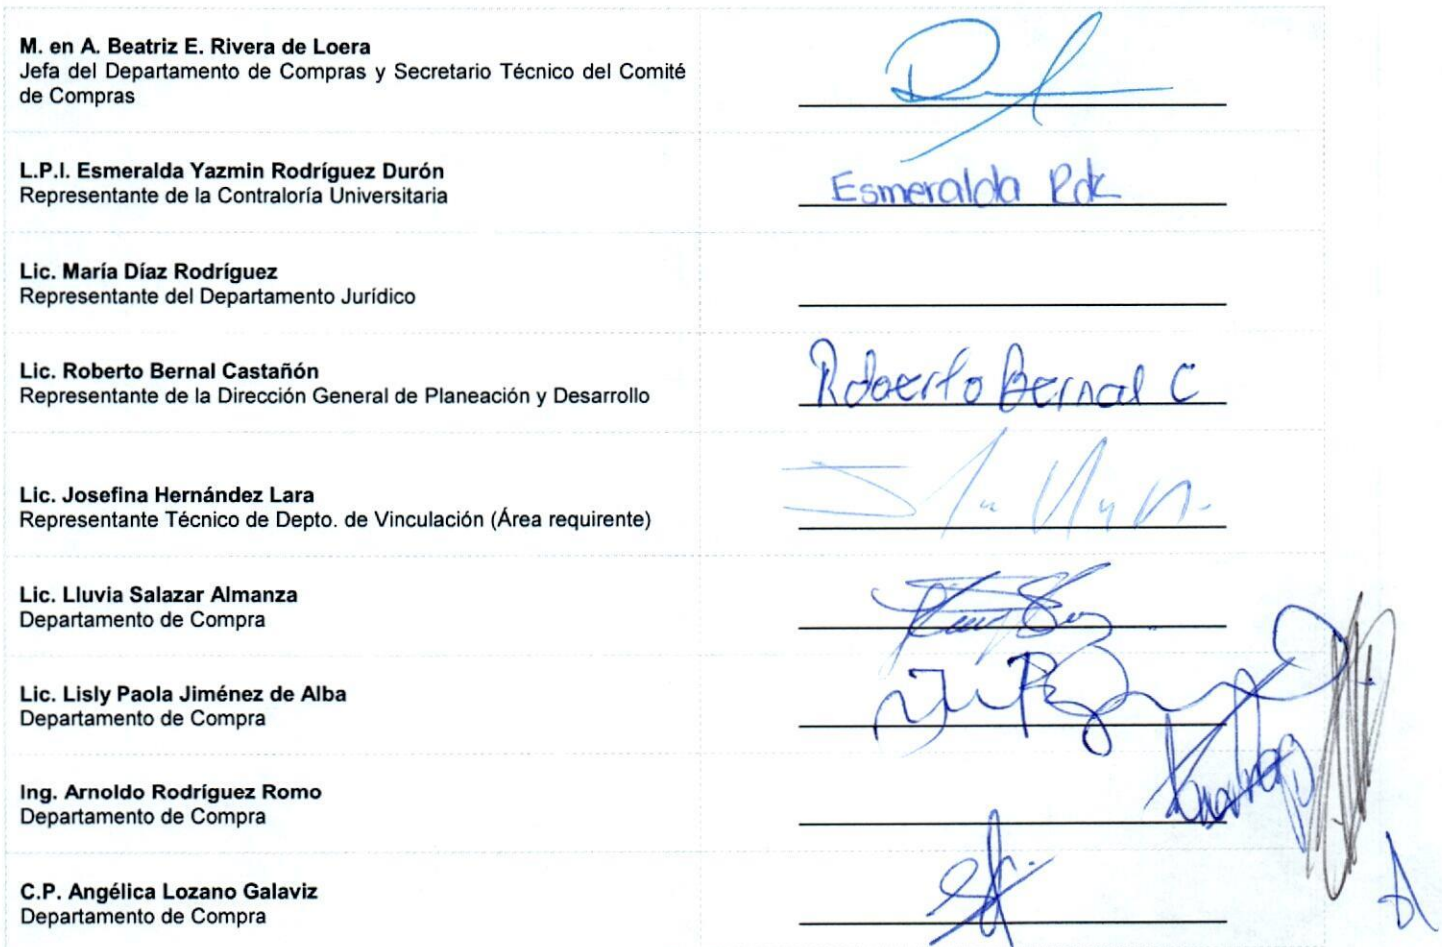 M. en A. Beatriz E. Rivera de Loera
Jefa del Departamento de Compras y Secretario Técnico del Comité
de Compras
L.P.I. Esmeralda Yazmin Rodríguez Durón
Representante de la Contraloría Universitaria
Esmeralda Rdz
Lic. María Díaz Rodríguez
Representante del Departamento Jurídico
Lic. Roberto Bernal Castañón
Representante de la Dirección General de Planeación y Desarrollo
Roberto Bernal C
Lic. Josefina Hernández Lara
Representante Técnico de Depto. de Vinculación (Área requirente)
Lic. Lluvia Salazar Almanza
Departamento de Compra
Lic. Lisly Paola Jiménez de Alba
Departamento de Compra
Ing. Arnoldo Rodríguez Romo
Departamento de Compra
C.P. Angélica Lozano Galaviz
Departamento de Compra